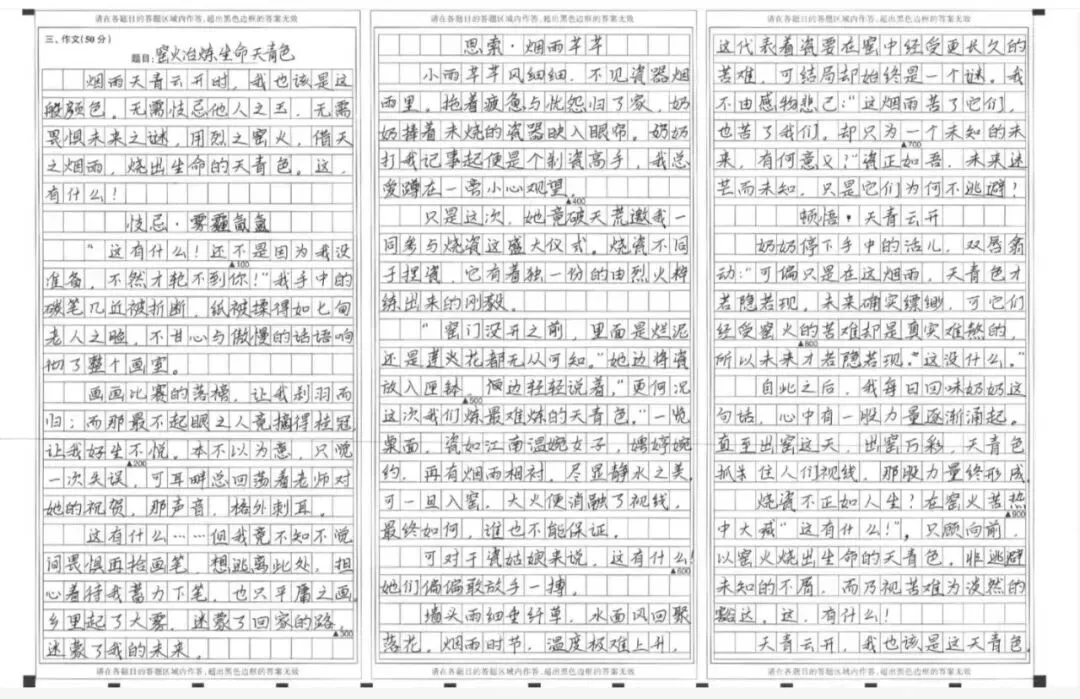 请在各题目的答题区域内作答，超出黑色边框的答案无效
三、作文(50分)
题目:窑火冶炼生命天青色
烟雨天青云开时，我也该是这
般颜色。无需忮忌他人之玉，无需
畏惧未来之谜，用烈之窑火，借天
之烟雨，烧出生命的天青色。这，
有什么！
忮忌·雾霾氤氲
“这有什么！还不是因为我没
▲100
准备，不然才轮不到你！”我手中的
碳笔几近被折断，纸被揉得如七旬
老人之脸，不甘心与傲慢的话语响
彻了整个画室。
画画比赛的落榜，让我刹羽而
归；而那最不起眼之人竟摘得桂冠，
让我好生不悦。本不以为意，只觉
▲200
一次失误，可耳畔总回荡着老师对
她的祝贺，那声音，格外刺耳。
这有什么……但我竟不知不觉
间畏惧再拾画笔，想逃离此处，担
心着待我蓄力下笔，也只平庸之画。
乡里起了大雾，迷蒙了回家的路，
▲300
迷蒙了我的未来。
请在各题目的答题区域内作答，超出黑色边框的答案无效
请在各题目的答题区域内作答，超出黑色边框的答案无效
思索·烟雨芊芊
小雨芊芊风细细，不见瓷器烟
雨里。拖着疲惫与忧怨归了家，奶
奶捧着未烧的瓷器映入眼帘。奶奶
打我记事起便是个制瓷高手，我总
爱蹲在一旁小心观望。
▲400
只是这次，她竟破天荒邀我一
同参与烧瓷这盛大仪式。烧瓷不同
于捏瓷，它有着独一份的由烈火淬
练出来的刚毅。
“窑门没开之前，里面是烂泥
还是莲火花都无从可知。”她边将瓷
放入匣钵，便边轻轻说着，“更何况
▲500
这次我们炼最难炼的天青色。”一览
桌面，瓷如江南温婉女子，娉婷婉
约，再有烟雨相衬，尽显静水之美，
可一旦入窑，大火便消融了视线，
最终如何，谁也不能保证。
可对于瓷姑娘来说，这有什么！
▲600
她们偏偏敢放手一搏。
墙头雨细垂纤草，水面风回聚
落花。烟雨时节，温度极难上升，
请在各题目的答题区域内作答，超出黑色边框的答案无效
请在各题目的答题区域内作答，超出黑色边框的答案无效
这代表着瓷要在窑中经受更长久的
苦难，可结局却始终是一个谜。我
不由感物悲己：“这烟雨苦了它们，
也苦了我们，却只为一个未知的未
▲700
来，有何意义？”瓷正如吾，未来迷
茫而未知，只是它们为何不逃避！
顿悟·天青云开
奶奶停下手中的活儿，双唇翕
动：“可偏只是在这烟雨，天青色才
若隐若现。未来确实缥缈，可它们
经受窑火的苦难却是真实难熬的，
▲800
所以未来才若隐若现。“这没什么。”
自此之后，我每日回味奶奶这
句话，心中有一股力量逐渐涌起。
直至出窑这天，出窑万彩，天青色
抓住人们视线，那股力量终形成
烧瓷不正如人生？在窑火苦热
▲900
中大喊“这有什么！”，只顾向前，
以窑火烧出生命的天青色，非逃避
未知的不屑，而乃视苦难为淡然的
豁达。这，有什么！
天青云开，我也该是这天青色。
请在各题目的答题区域内作答，超出黑色边框的答案无效